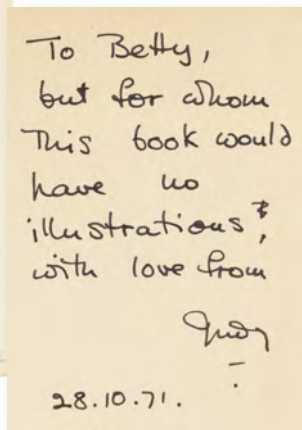 To Betty,
but for whom
This book would
have no
illustrations,
with love from
28.10.71.